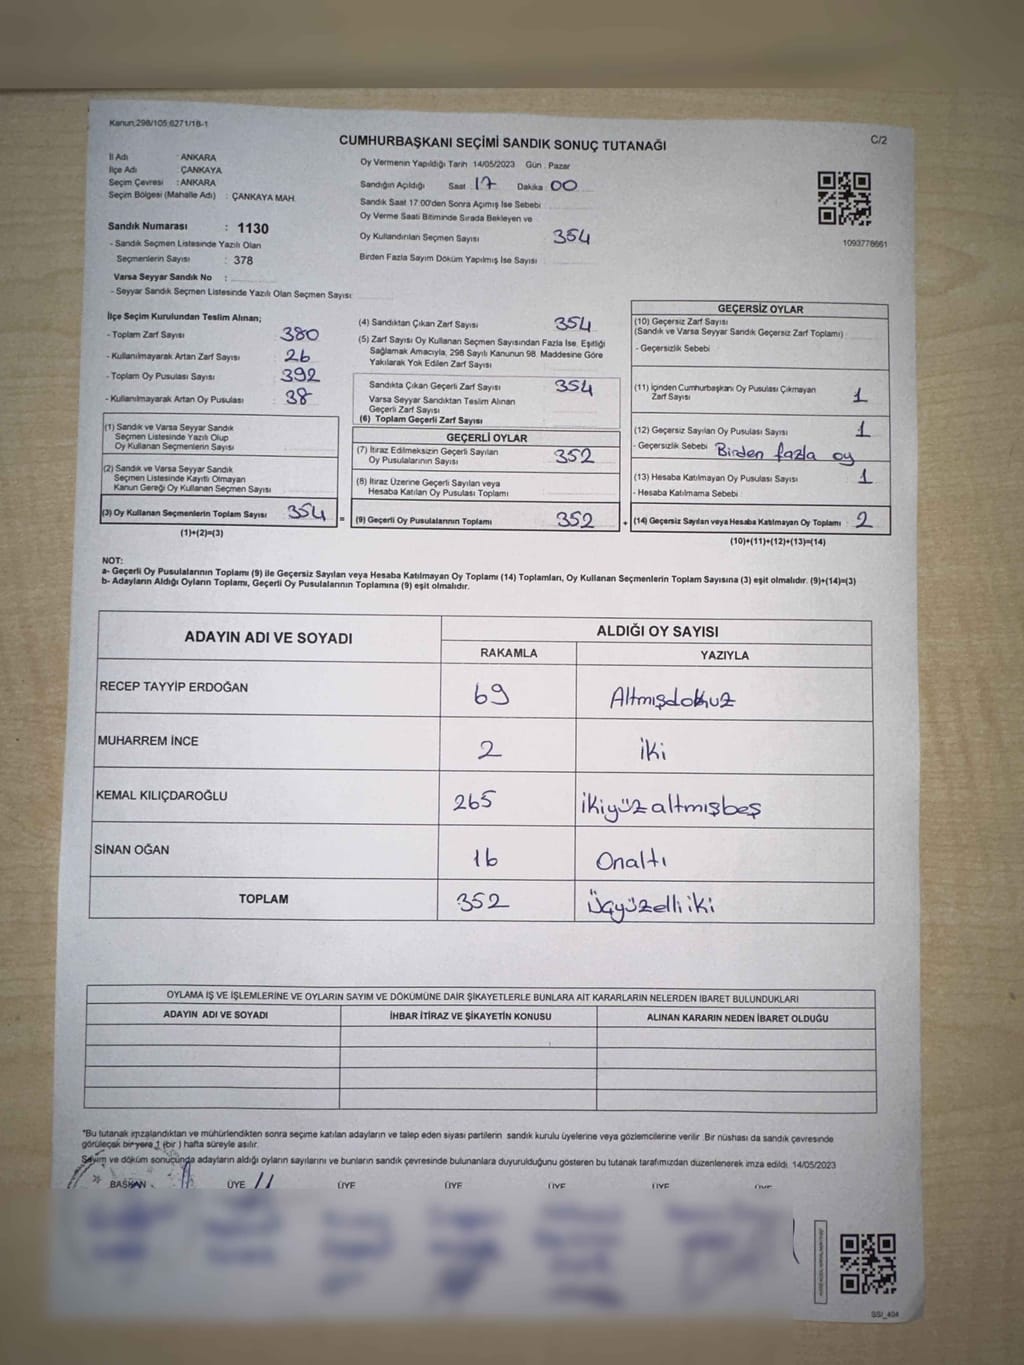 Kanun;298/105;6271/18-1
C/2
CUMHURBAŞKANI SEÇİMİ SANDIK SONUÇ TUTANAĞI
İl Adı : ANKARA
İlçe Adı : ÇANKAYA
Seçim Çevresi : ANKARA
Seçim Bölgesi (Mahalle Adı) : ÇANKAYA MAH.
Sandık Numarası : 1130
- Sandık Seçmen Listesinde Yazılı Olan
Seçmenlerin Sayısı : 378
Varsa Seyyar Sandık No :
- Seyyar Sandık Seçmen Listesinde Yazılı Olan Seçmen Sayısı:
Oy Vermenin Yapıldığı Tarih 14/05/2023 Gün : Pazar
Sandığın Açıldığı Saat 17 Dakika 00
Sandık Saat 17:00'den Sonra Açılmış İse Sebebi
Oy Verme Saati Bitiminde Sırada Bekleyen ve
Oy Kullandırılan Seçmen Sayısı 354
Birden Fazla Sayım Döküm Yapılmış İse Sayısı
1093778661
İlçe Seçim Kurulundan Teslim Alınan;
- Toplam Zarf Sayısı 380
- Kullanılmayarak Artan Zarf Sayısı 26
- Toplam Oy Pusulası Sayısı 392
- Kullanılmayarak Artan Oy Pusulası 38
(1) Sandık ve Varsa Seyyar Sandık
Seçmen Listesinde Yazılı Olup
Oy Kullanan Seçmenlerin Sayısı
(2) Sandık ve Varsa Seyyar Sandık
Seçmen Listesinde Kayıtlı Olmayan
Kanun Gereği Oy Kullanan Seçmen Sayısı
(3) Oy Kullanan Seçmenlerin Toplam Sayısı 354
(1)+(2)=(3)
=
(4) Sandıktan Çıkan Zarf Sayısı 354
(5) Zarf Sayısı Oy Kullanan Seçmen Sayısından Fazla İse, Eşitliği
Sağlamak Amacıyla, 298 Sayılı Kanunun 98. Maddesine Göre
Yakılarak Yok Edilen Zarf Sayısı
Sandıkta Çıkan Geçerli Zarf Sayısı 354
Varsa Seyyar Sandıktan Teslim Alınan
Geçerli Zarf Sayısı
(6) Toplam Geçerli Zarf Sayısı
GEÇERLİ OYLAR
(7) İtiraz Edilmeksizin Geçerli Sayılan
Oy Pusulalarının Sayısı 352
(8) İtiraz Üzerine Geçerli Sayılan veya
Hesaba Katılan Oy Pusulası Toplamı
(9) Geçerli Oy Pusulalarının Toplamı 352
+
GEÇERSİZ OYLAR
(10) Geçersiz Zarf Sayısı
(Sandık ve Varsa Seyyar Sandık Geçersiz Zarf Toplamı)
- Geçersizlik Sebebi
(11) İçinden Cumhurbaşkanı Oy Pusulası Çıkmayan
Zarf Sayısı 1
(12) Geçersiz Sayılan Oy Pusulası Sayısı 1
- Geçersizlik Sebebi Birden fazla oy
(13) Hesaba Katılmayan Oy Pusulası Sayısı 1
- Hesaba Katılmama Sebebi
(14) Geçersiz Sayılan veya Hesaba Katılmayan Oy Toplamı 2
(10)+(11)+(12)+(13)=(14)
NOT:
a- Geçerli Oy Pusulalarının Toplamı (9) ile Geçersiz Sayılan veya Hesaba Katılmayan Oy Toplamı (14) Toplamları, Oy Kullanan Seçmenlerin Toplam Sayısına (3) eşit olmalıdır. (9)+(14)=(3)
b- Adayların Aldığı Oyların Toplamı, Geçerli Oy Pusulalarının Toplamına (9) eşit olmalıdır.
ADAYIN ADI VE SOYADI ALDIĞI OY SAYISI
RAKAMLA YAZIYLA
RECEP TAYYİP ERDOĞAN 69 Altmışdokuz
MUHARREM İNCE 2 iki
KEMAL KILIÇDAROĞLU 265 ikiyüzaltmışbeş
SİNAN OĞAN 16 Onaltı
TOPLAM 352 Üçyüzelliiki
OYLAMA İŞ VE İŞLEMLERİNE VE OYLARIN SAYIM VE DÖKÜMÜNE DAİR ŞİKAYETLERLE BUNLARA AİT KARARLARIN NELERDEN İBARET BULUNDUKLARI
ADAYIN ADI VE SOYADI İHBAR İTİRAZ VE ŞİKAYETİN KONUSU ALINAN KARARIN NEDEN İBARET OLDUĞU
*Bu tutanak imzalandıktan ve mühürlendikten sonra seçime katılan adayların ve talep eden siyasi partilerin sandık kurulu üyelerine veya gözlemcilerine verilir. Bir nüshası da sandık çevresinde
görülecek bir yere 1 (bir ) hafta süreyle asılır.
Sayım ve döküm sonucunda adayların aldığı oyların sayılarını ve bunların sandık çevresinde bulunanlara duyurulduğunu gösteren bu tutanak tarafımızdan düzenlenerek imza edildi. 14/05/2023
BAŞKAN ÜYE ÜYE ÜYE ÜYE ÜYE ÜYE
SSI_404